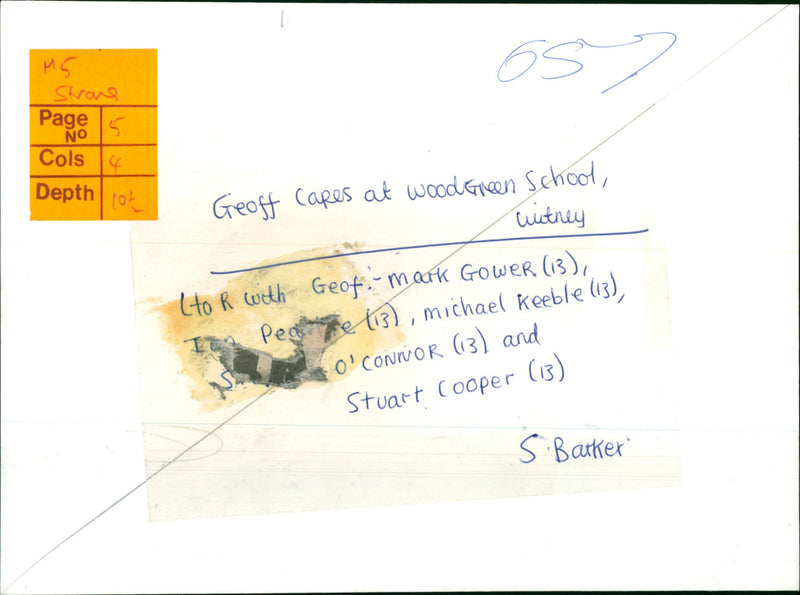 657
M5
Page No 5
Cols 4
Depth 10½
Geoff Capes at WoodGreen School,
Witney
L to R with Geof:- Mark GOWER (13),
(13), michael Keeble (13),
O'CONNOR (13) and
Stuart Cooper (13)
S. Barker